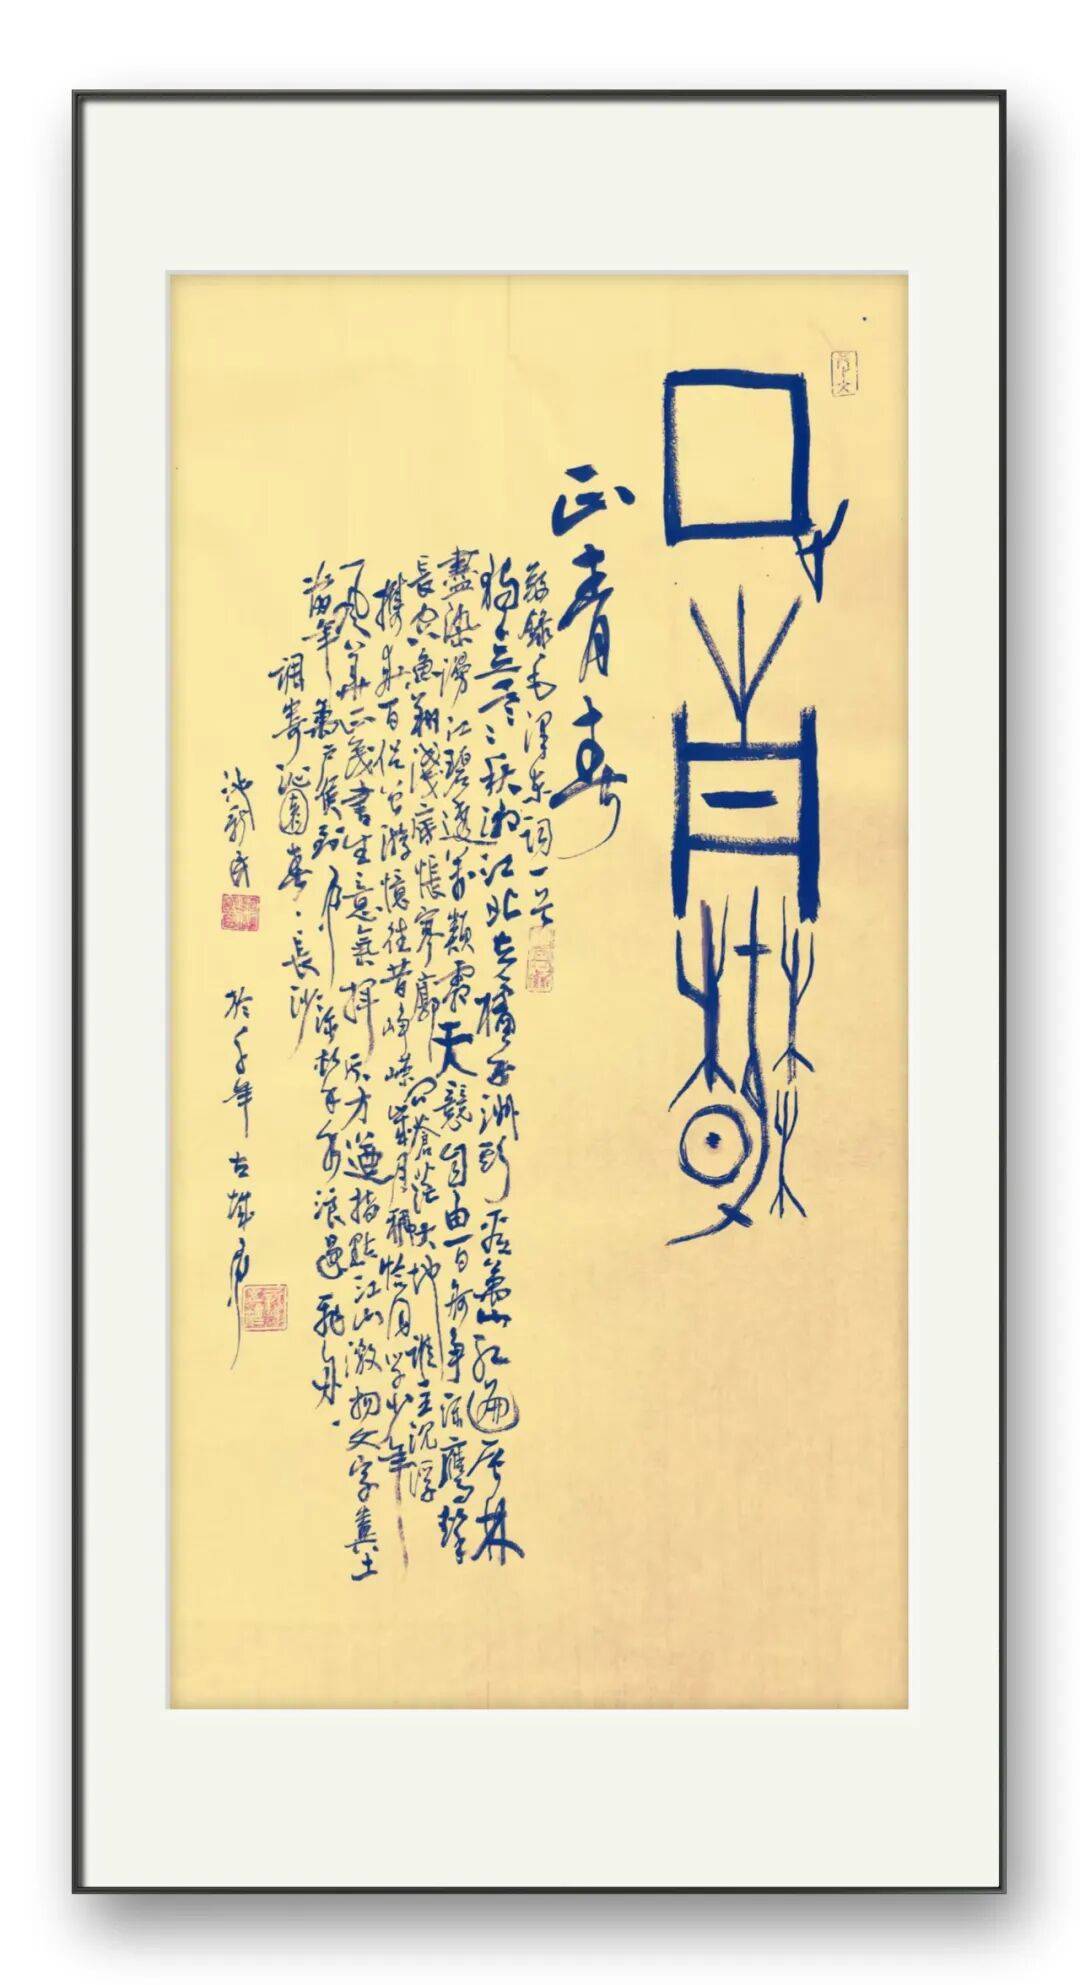 正青春
正青春
敬錄毛澤東詞一首
獨立寒秋湘江北去橘子洲頭看萬山紅遍層林
盡染漫江碧透萬類霜天競自由百舸爭流鷹擊
長空魚翔淺底悵寥廓問蒼茫大地誰主沉浮
攜來百侶曾游憶往昔崢嶸歲月稠恰同學少年
風華正茂書生意氣揮斥方遒指點江山激揚文字糞土
當年萬戶侯到中流水浪遏飛舟
調寄沁園春·長沙
池新民 於千年古城